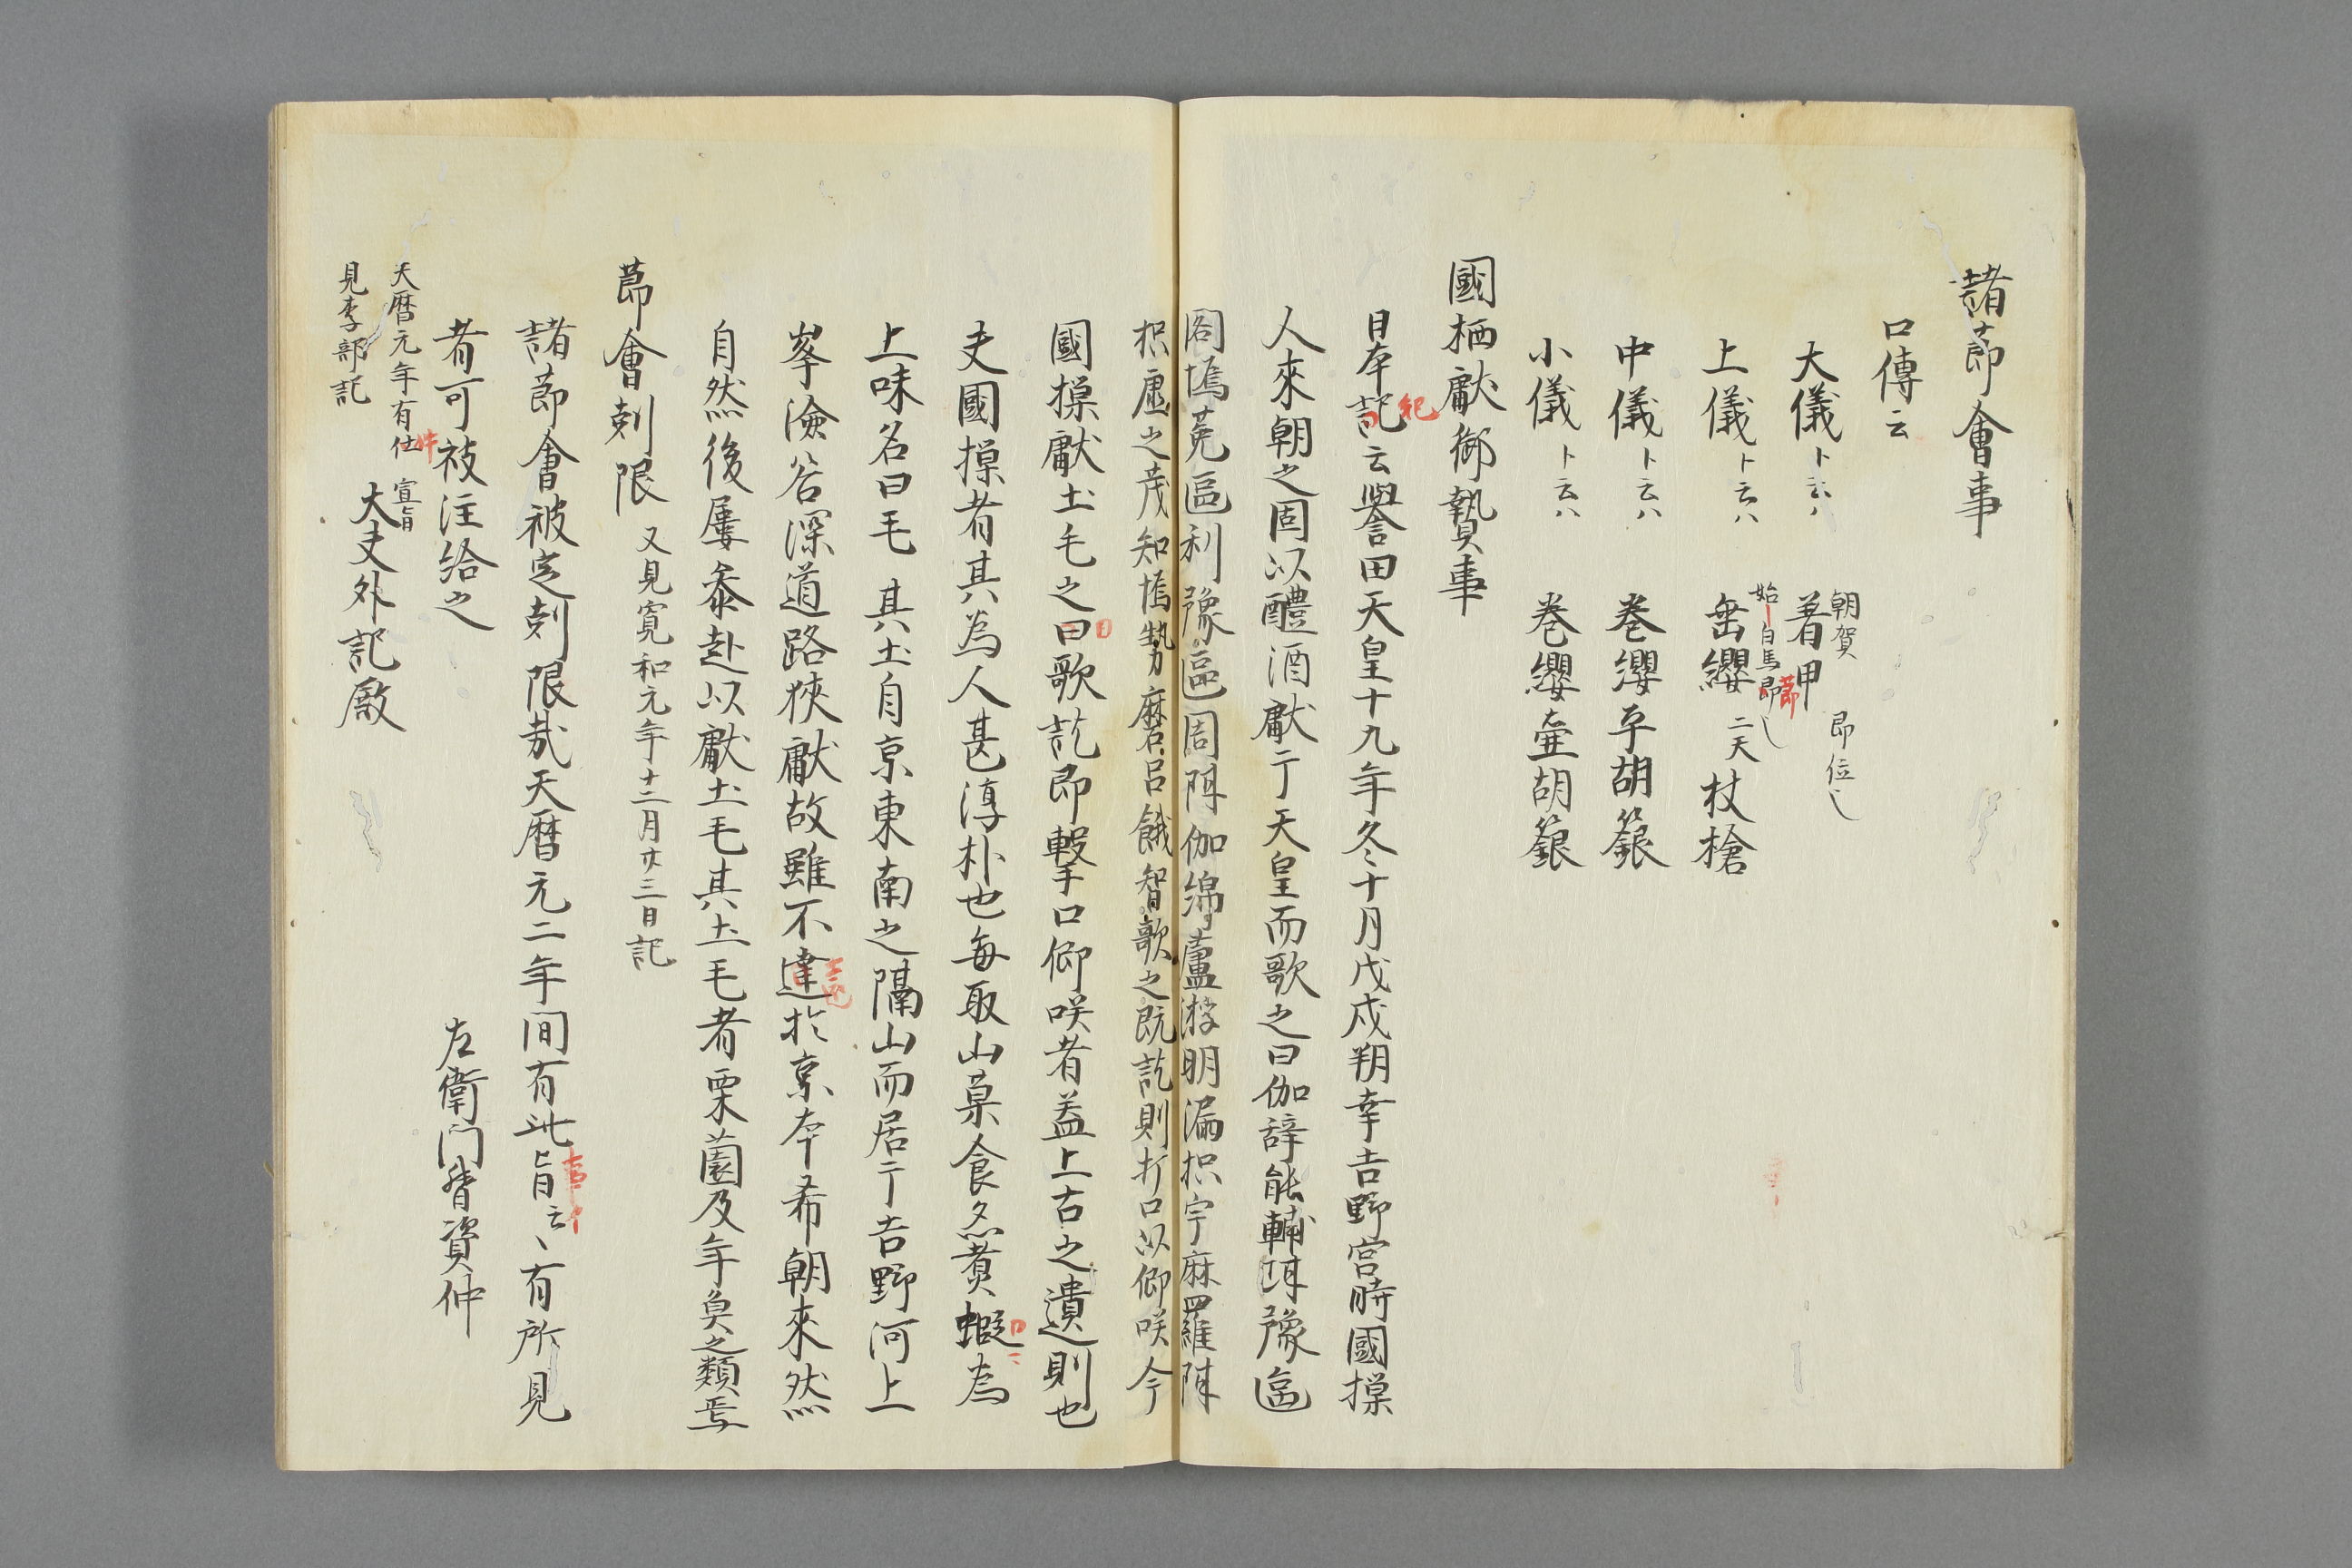 諸節會事
口傳云
大儀ト云ハ 著甲 朝賀 即位〻
上儀ト云ハ 垂纓 二天 杖槍 始白馬節〻
中儀ト云ハ 巻纓平胡籙
小儀ト云ハ 巻纓壷胡籙
國栖獻御贄事
日本記云譽田天皇十九年冬十月戊戌朔幸吉野宮時國樔
紀
人來朝之因以醴酒獻于天皇而歌之曰伽辞能輔珥豫區
利豫區周
伽綿蘆淤明漏枳宇麻羅
枳虚之茂知塢勢磨呂餓智歌之既訖則打口以仰咲今
國樔獻土毛之日歌訖即擊口仰咲者蓋上古之遺則也
夫國樔者其為人甚淳朴也每取山菓食亦煮蝦為
上味名曰毛 其土自京東南之隔山而居于吉野河上
峯嶮谷深道路狹獻故雖不達於京本希朝來然
自然後屢參赴以獻土毛其土毛者栗菌及年魚之類焉
節會剋限 又見寛和元年十二月廿三日記
諸節會被定剋限哉天暦元二年間有此旨云〻有所見
者可被注給之 左衛門督資仲
天暦元年有仕 宣旨
件
見李部記
大夫外記殿